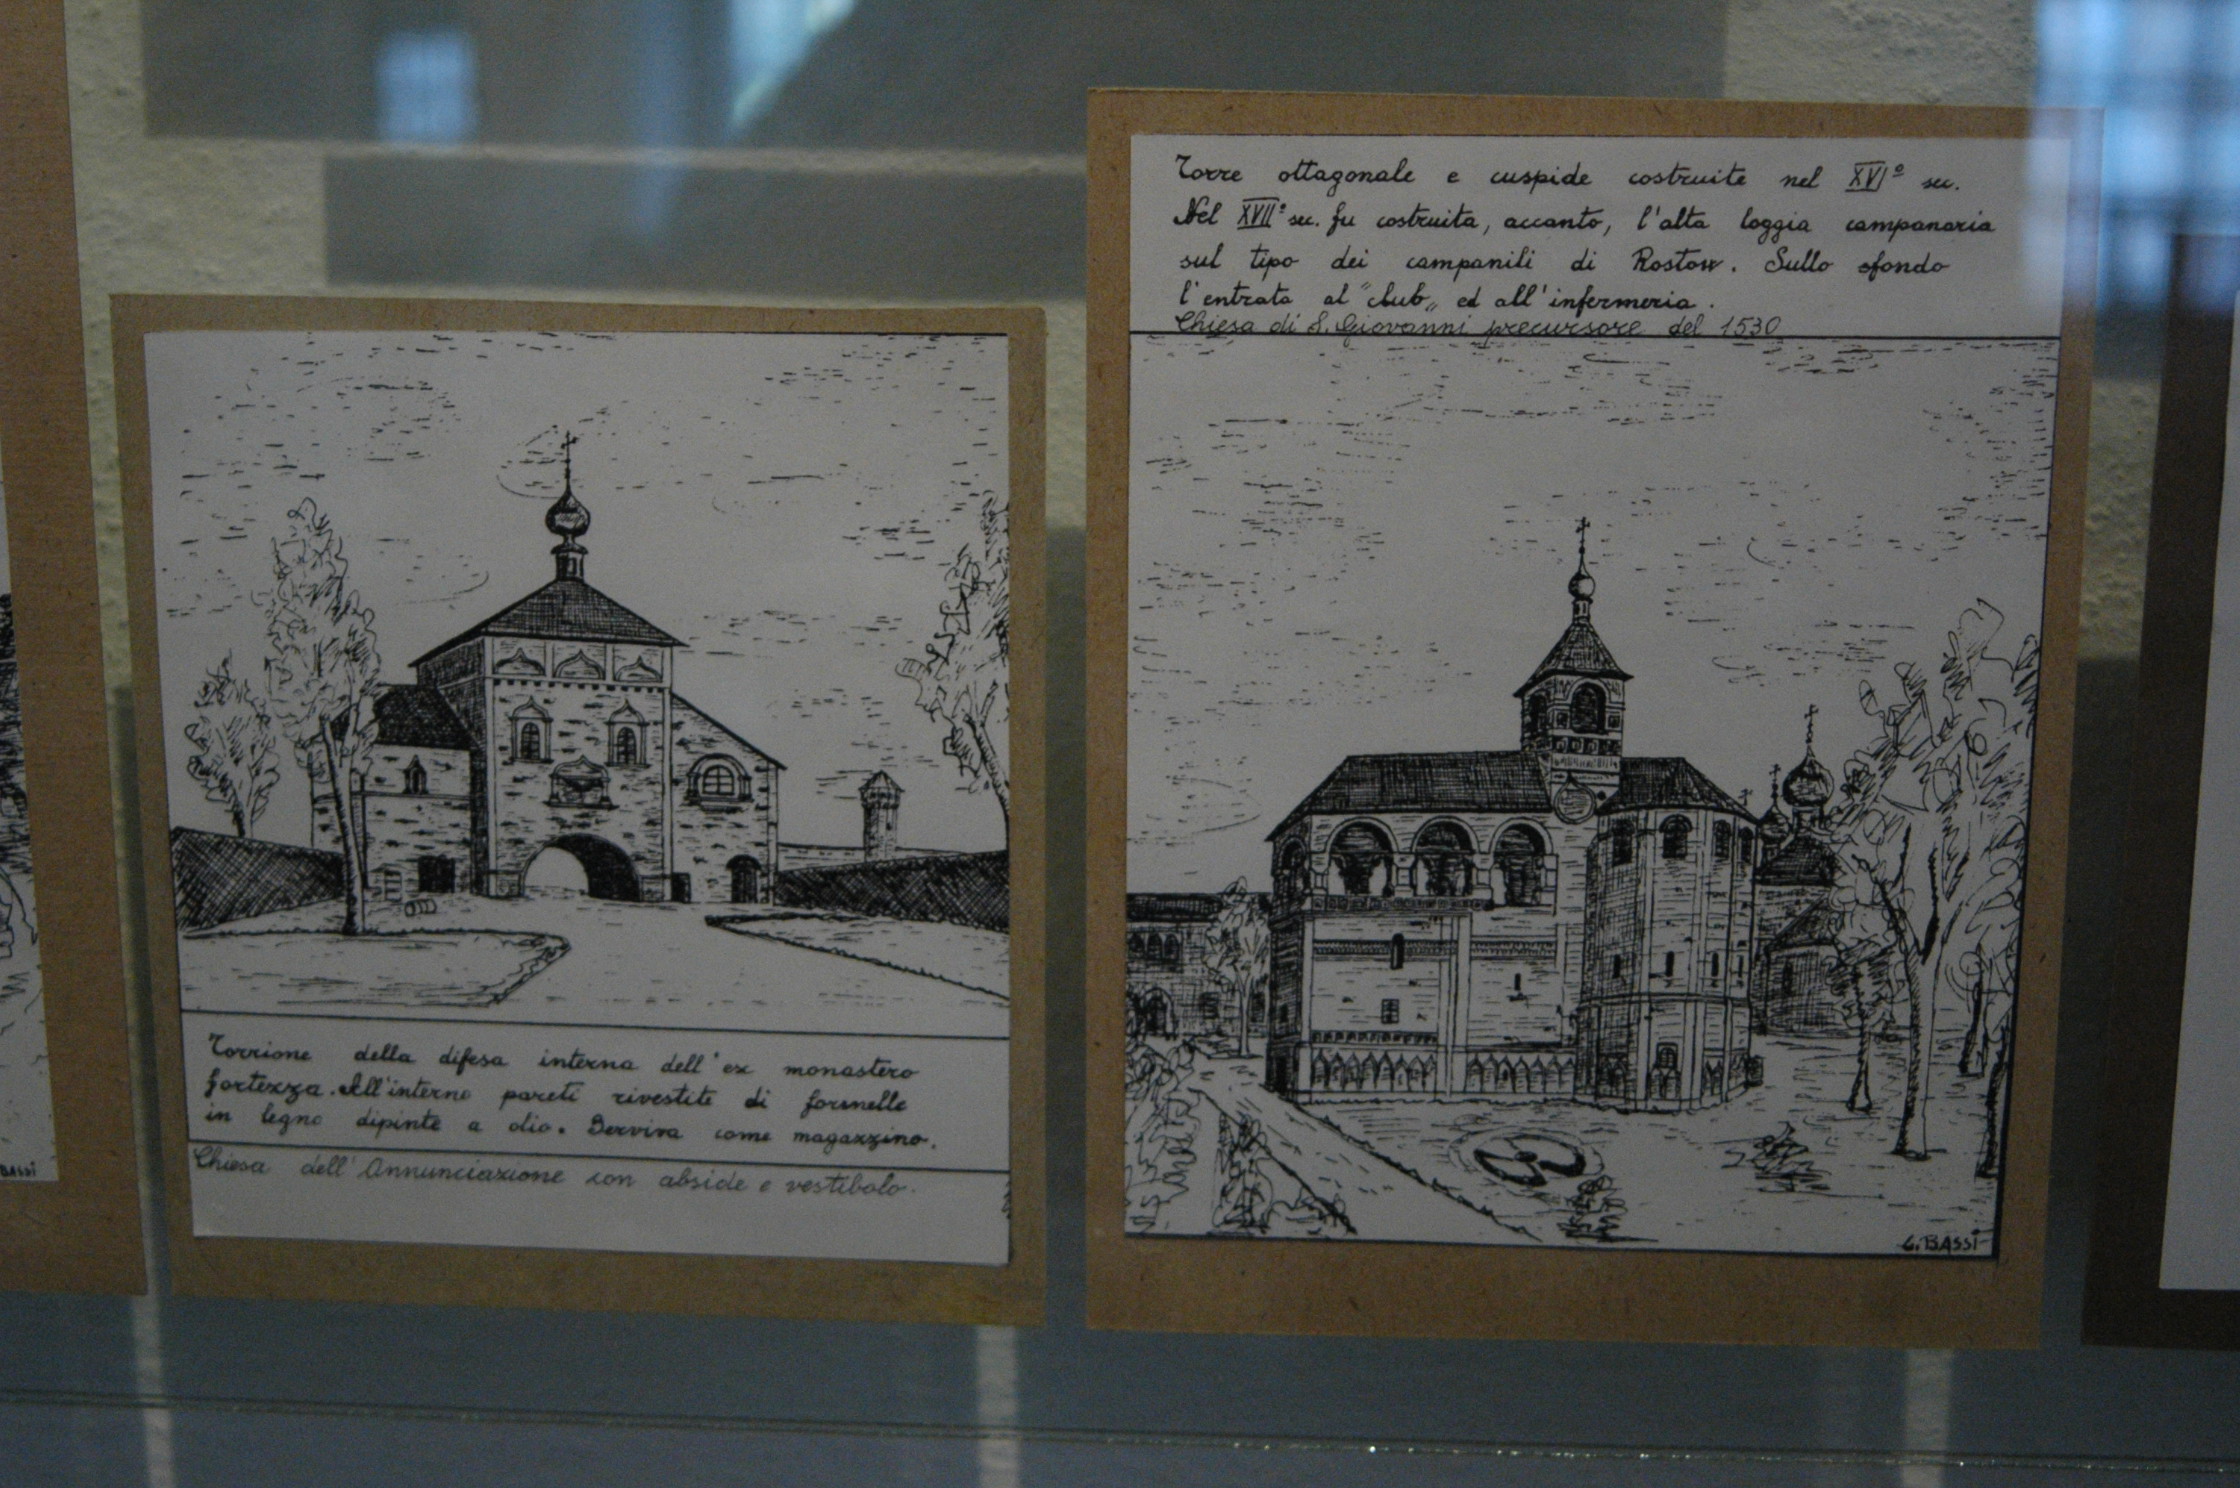 Torrione della difesa interna dell'ex monastero
fortezza. All'interno pareti rivestite di formelle
in legno dipinte a olio. Serviva come magazzino.
Chiesa dell'Annunciazione con abside e vestibolo.
Torre ottagonale e cuspide costruite nel XVIº sec.
Nel XVIIº sec. fu costruita, accanto, l'alta loggia campanaria
sul tipo dei campanili di Rostow. Sullo sfondo
l'entrata al "club" ed all'infermeria.
Chiesa di S. Giovanni precursore del 1530
G. BASSI
BASSI